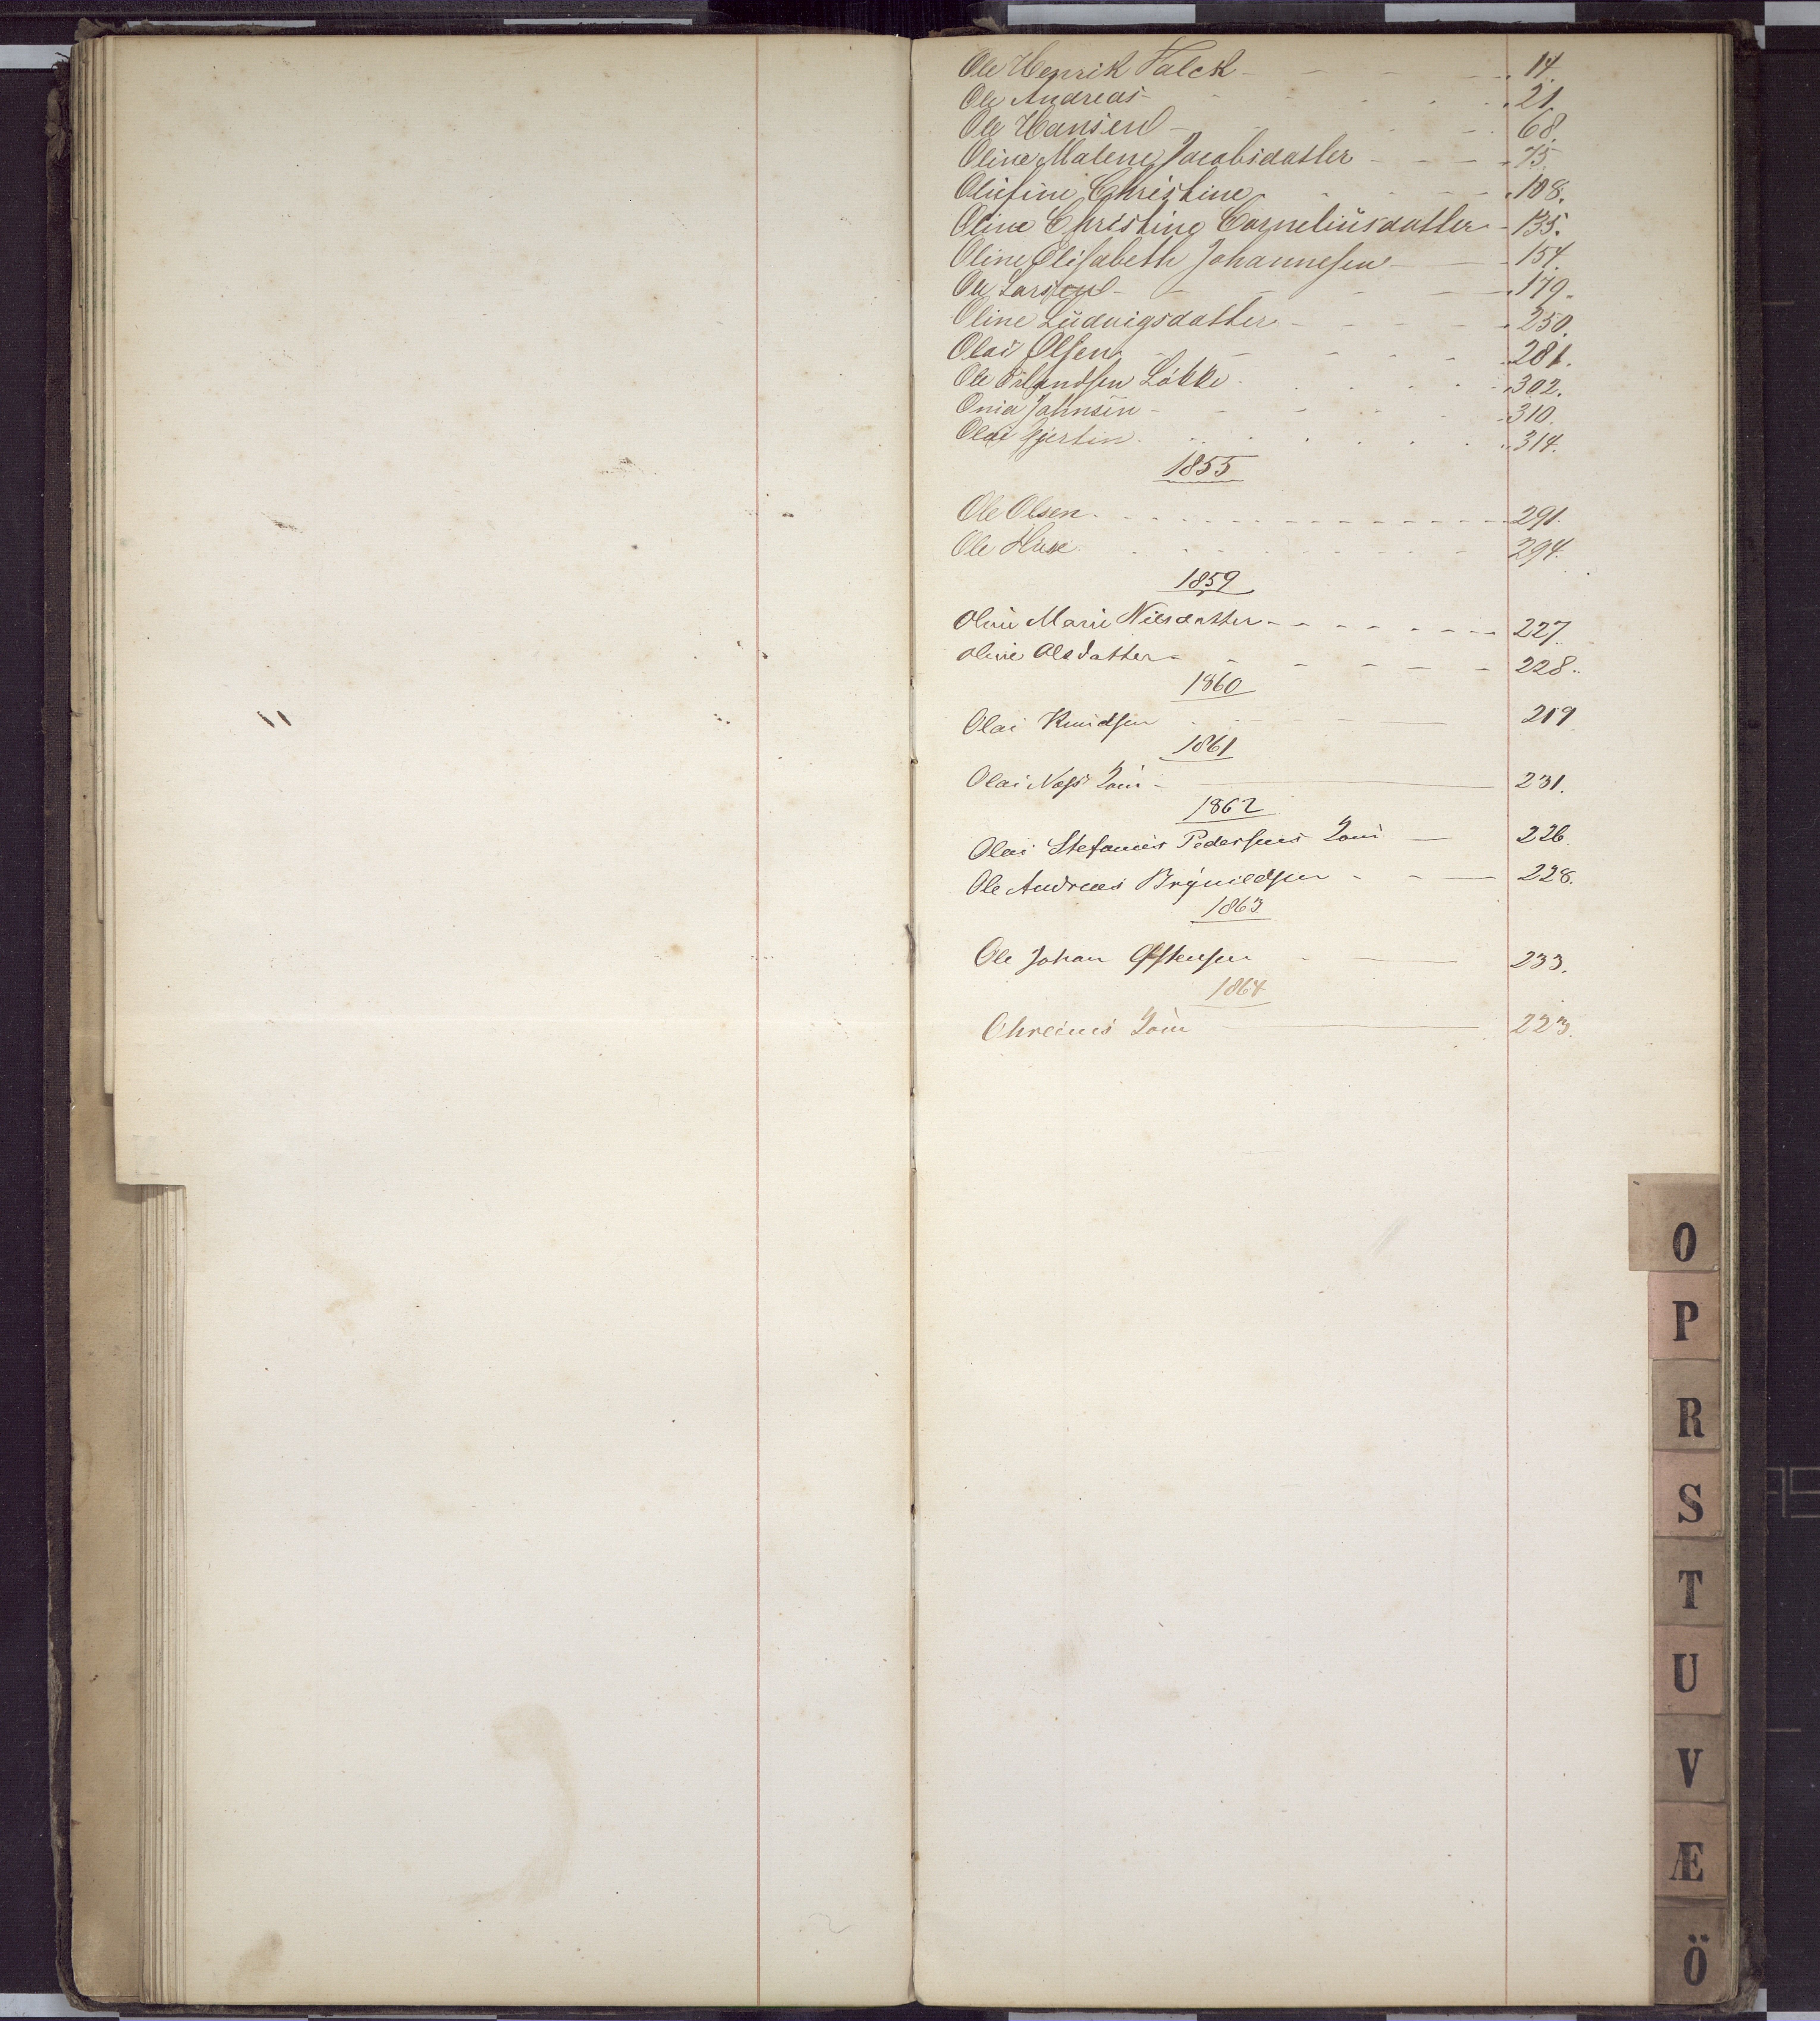 Ole Henrik Falck 14.
Ole Andreas 21.
Ole Hansen 68.
Oline Malene Jacobsdatter 75.
Olufine Christine 108.
Oline Christine Corneliusdatter 135.
Oline Elisabeth Johannesen 154.
Ole Larsen 179.
Oline Ludvigsdatter 250.
Olai Olsen 281.
Ole Erlandsen Løkke 302.
Onia Johnsen 310.
Olai Gjertin 314.
1855
Ole Olsen 291.
Ole Huse 294.
1859
Oline Marie Nilsdatter 227
Oline Olsdatter 228.
1860
Olai Knudsen 219
1861
Olai 231.
1862
Olai Stefanus Pedersens 226.
Ole Andreas Brynildsen 228.
1863
Ole Johan 233.
1864
223.
O
P
R
S
T
U
V
Æ
Ö